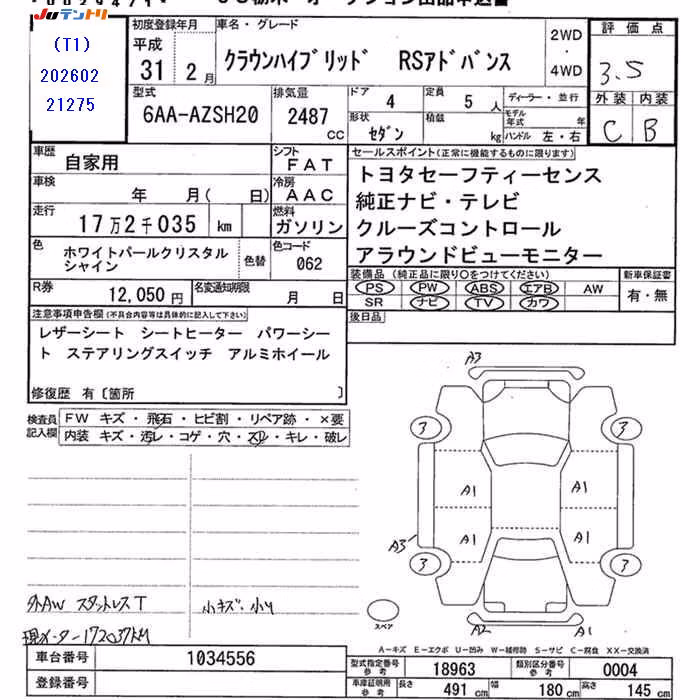 JUテントリ
(T1)
202602
21275
初度登録年月
平成
31 2月
車名・グレード
クラウンハイブリッド RSアドバンス
2WD
・
4WD
評価点
3.5
外装 内装
C B
型式
6AA-AZSH20
排気量
2487
CC
ドア 4
定員 5人
ディーラー・並行
形状
セダン
積載 kg
モデル年式 年
ハンドル 左・右
車歴
自家用
シフト
FAT
車検
年 月( 日)
冷房
AAC
走行
17万2千035 km
燃料
ガソリン
色
ホワイトパールクリスタル
シャイン
色替
色コード
062
R券
12,050円
名変通知期限
月 日
セールスポイント(正常に機能するものに限ります)
トヨタセーフティーセンス
純正ナビ・テレビ
クルーズコントロール
アラウンドビューモニター
装備品(純正品に限り○をつけてください)
PS PW ABS エアB AW
SR ナビ TV カワ
新車保証書
有・無
後日品
注意事項申告欄(不具合内容等は具体的に記入して下さい)
レザーシート シートヒーター パワーシー
ト ステアリングスイッチ アルミホイール
修復歴 有〔箇所 〕
検査員
記入欄
FW キズ・飛石・ヒビ割・リペア跡・×要
内装 キズ・汚レ・コゲ・穴・スレ・キレ・破レ
A3
3
3
A1
A1
A1
A1
A3
3
3
A2
A1
スペア
外AW スタットレスT
小キズ・小U
現メーター172037KM
A-キズ E-エクボ U-凹み W-補修跡 S-サビ C-腐食 XX-交換済
車台番号
1034556
登録番号
型式指定番号
参考
18963
類別区分番号
参考
0004
車庫証明用
参考
長さ 491cm
幅 180cm
高さ 145cm